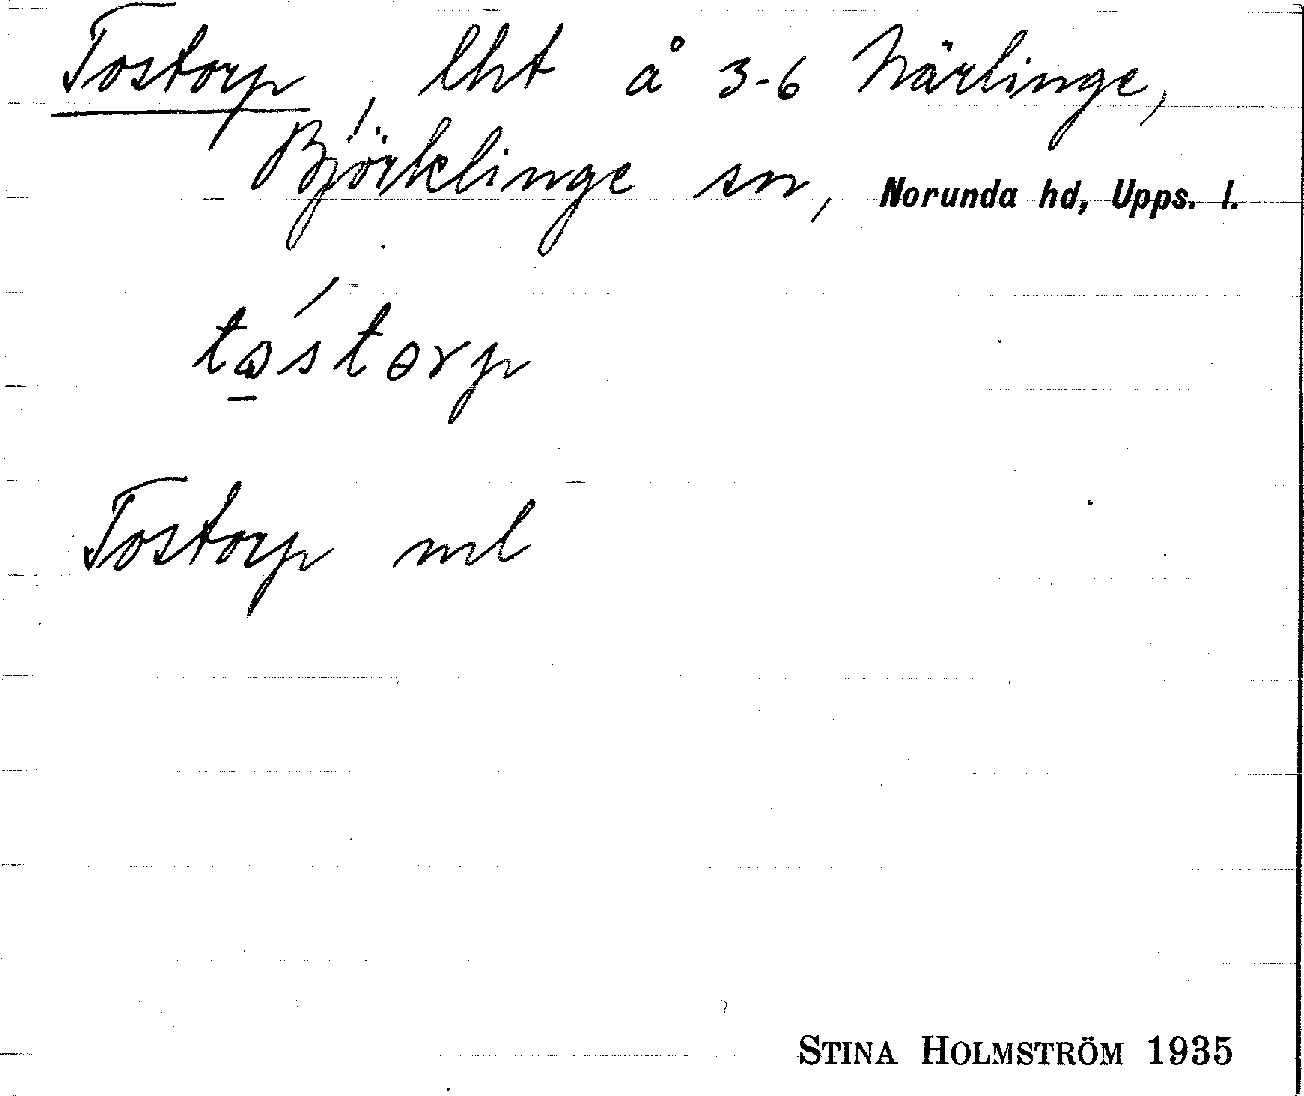 Tostorp, lht å 3-6 Närlinge,
Björklinge sn, Norunda hd, Upps. l.
tώ̱storp
Tostorp ml
STINA HOLMSTRÖM 1935